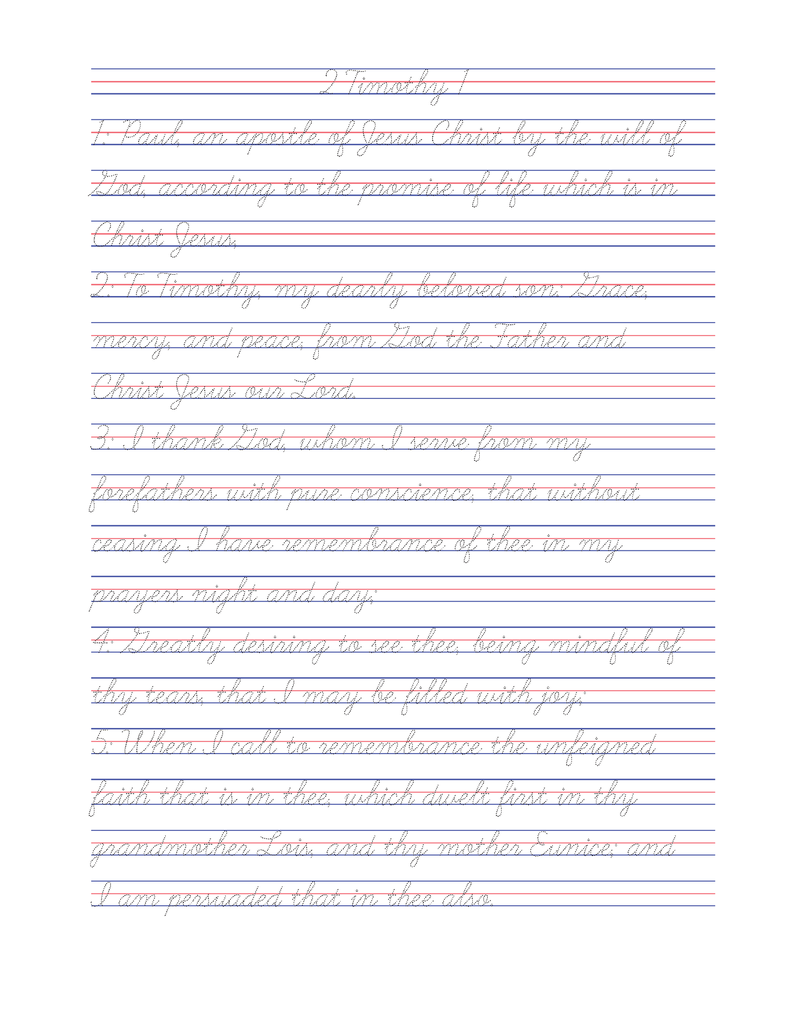 2 Timothy 1
1: Paul, an apostle of Jesus Christ by the will of
God, according to the promise of life which is in
Christ Jesus,
2: To Timothy, my dearly beloved son: Grace,
mercy, and peace, from God the Father and
Christ Jesus our Lord.
3: I thank God, whom I serve from my
forefathers with pure conscience, that without
ceasing I have remembrance of thee in my
prayers night and day;
4: Greatly desiring to see thee, being mindful of
thy tears, that I may be filled with joy;
5: When I call to remembrance the unfeigned
faith that is in thee, which dwelt first in thy
grandmother Lois, and thy mother Eunice; and
I am persuaded that in thee also.